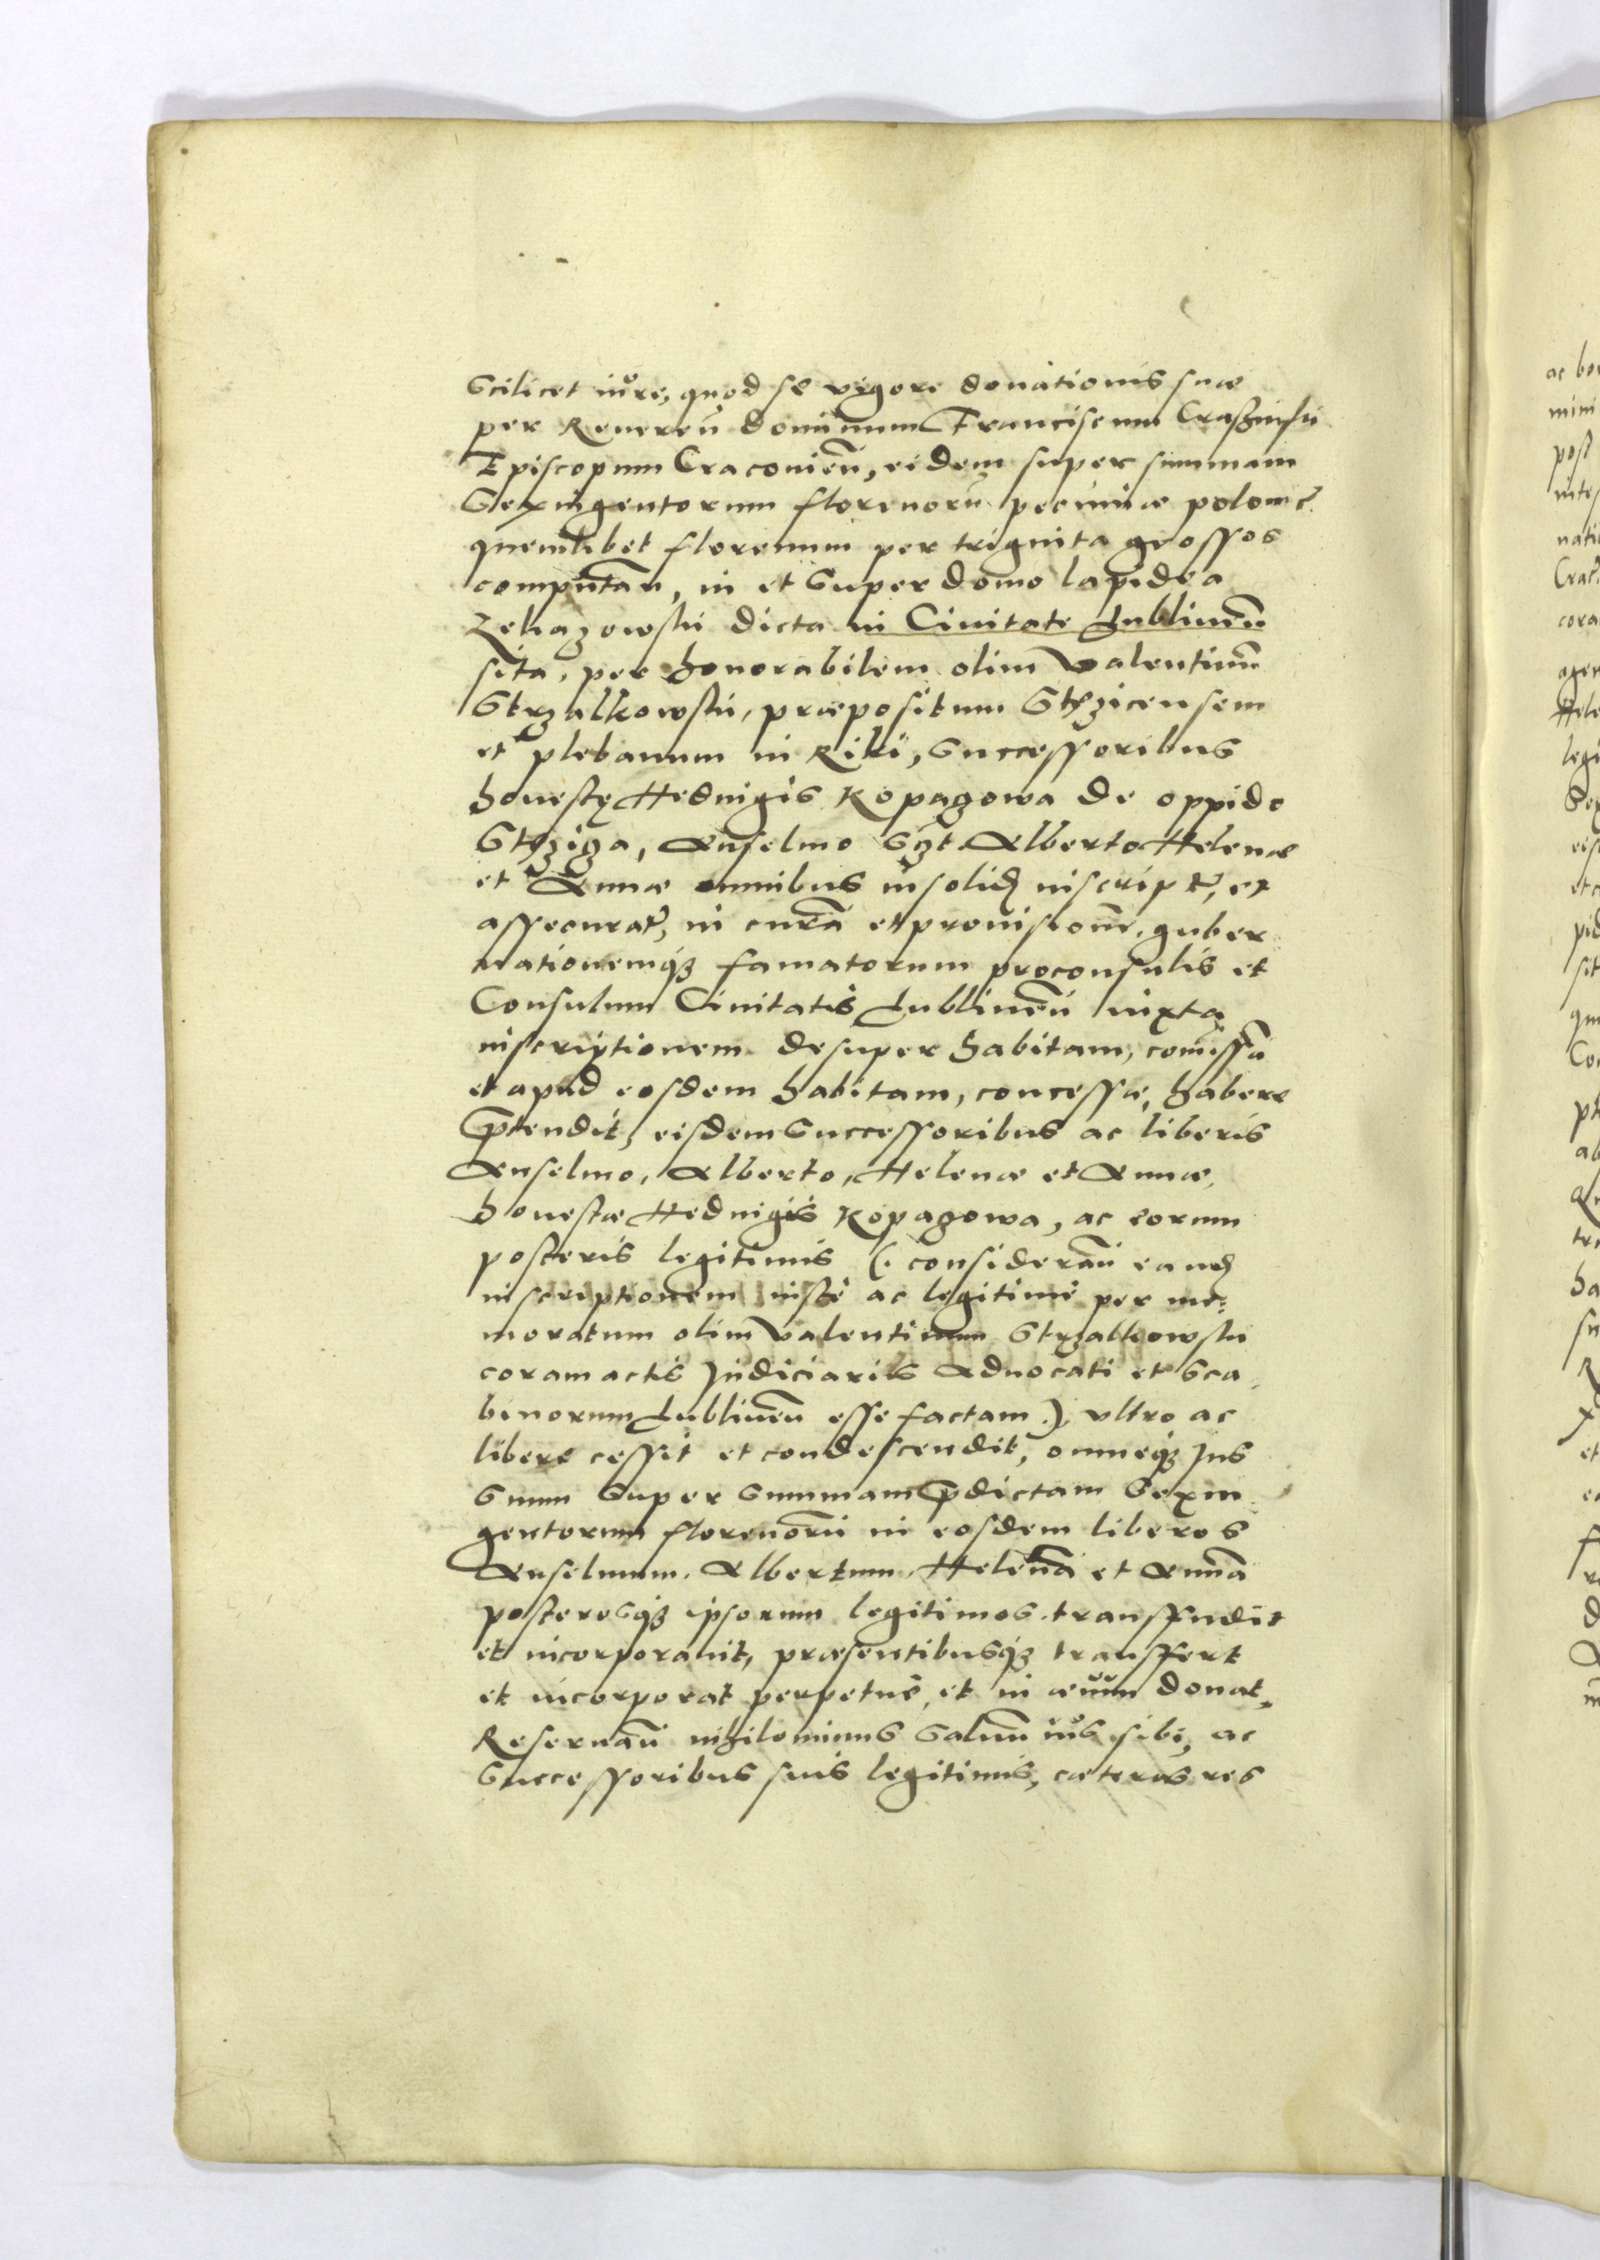 Scilicet iure, quod se vigore donationis suæ
per Reuereñ dominum Franciscum Craßinski
Episcopum Cracovieñ, eidem super summam
Sexingentorum florenorũ pecuniæ polonic̃
quemlibet florenum per triginta grossos
computañ, in et Super domo lapidea
dicta in Ciuitate Lublineñ
sita, per honorabilem olim Valentinũ
Strzalkowski, præpositum Stęzicensem
et plebanum in Riki, Successoribus
honestę Heduigis Kopagowa de oppido
Stęziza, Anselmo Alberto Helenæ
et Annæ omnibus insolid inscript̃, et
assecurat̃, in curã et prouisionẽ, guber
nationemq̃ famatorum proconsulis et
Consulum Ciuitatis Lublineñ iuxta
inscriptionem desuper habitam, comissã
et apud eosdem habitam, concessæ, habere
p̃tendit, eisdem Successoribus ac liberis
Anselmo, Alberto, Helenæ et Annæ,
honestæ Heduigis Kopagowa, ac eorum
posteris legitimis (. considerañ eand
inscriptionem iustè ac legitimè per me:
moratum olim Valentinum Strzalkowski
coram actis Judiciariis Aduocati et Sca
binorum Lublineñ esse factam .) vltro ac
libere cessit et condescendit, omneq̃ Jus
Suum Super Summam p̃dictam Sexin
gentorum florenorũ in eosdem liberos
Anselmum, Albertum, Helenã et Annã
posterosq̃ ipsorum legitimos transfudit
et incorporauit, præsentibusq̃ transfert
et incorporat perpetuè, et in æuum donat,
Reseruañ nihilominus Saluũ ius sibi, ac
Successoribus suis legitimis, cæteras res